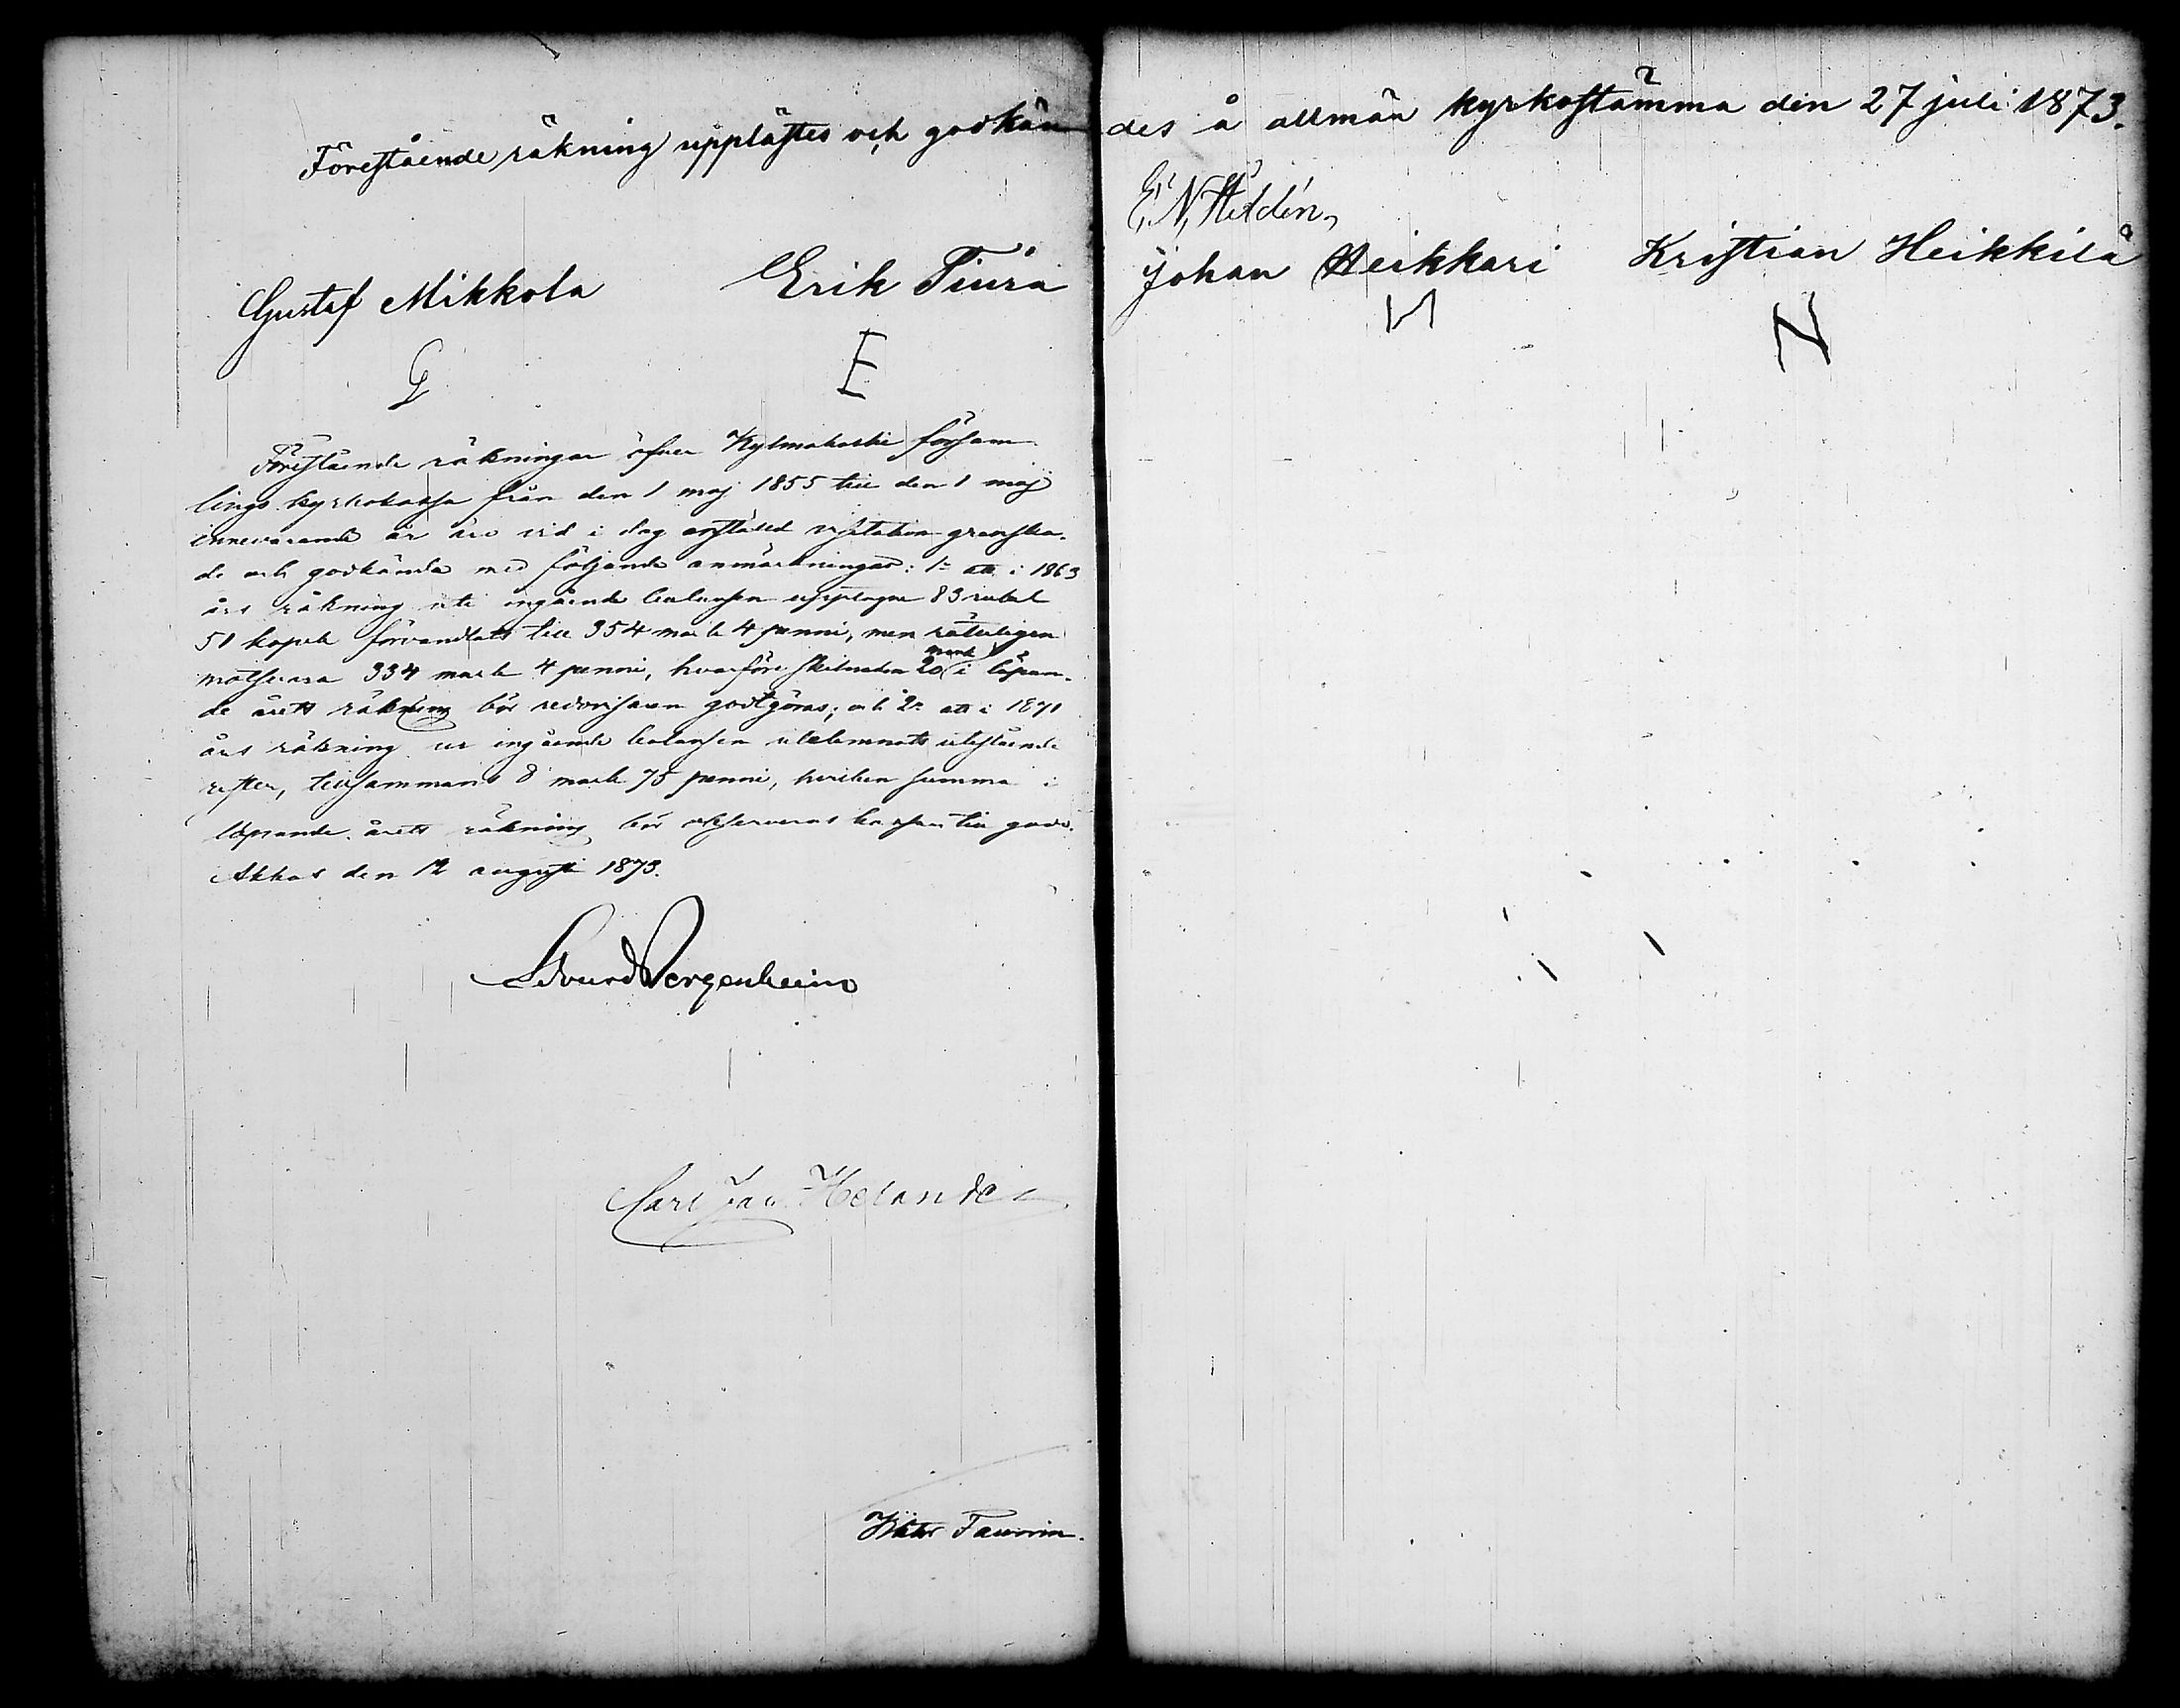 Förestående räkning upplästes och godkän
des å allmän kyrkostämma den 27 juli 1873.
E. N. Heldén,
Gustaf Mikkola Erik Piura
Johan Heikkari Kristian Heikkilä
G E
N N
Förestående räkningar öfver Kylmäkoski församlings
lings kyrkokassa från den 1 maj 1855 till den 1 maj
innevarande år äro vid i dag anställd visitation granska-
de och godkända med följande anmärkningar: 1o att i 1863
års räkning uti ingående balansen upptagne 83 rubel
51 kopek förvandlats till 354 mark 4 penni, men rätteligen
motsvara 334 mark 4 penni, hvarföre skilnaden 20 mark i löpan-
de årets räkning bör redovisaren godtgöras; och 2o att i 1871
års räkning ur ingående balansen utelemnats utestående
rester, tillsammans 8 mark 75 penni, hvilken summa i
löpande årets räkning bör observeras kassan till godo.
Akkas den 12 augusti 1873.
Edvard Bergenheim
Carl Jac. Helander
Viktor Taurén.